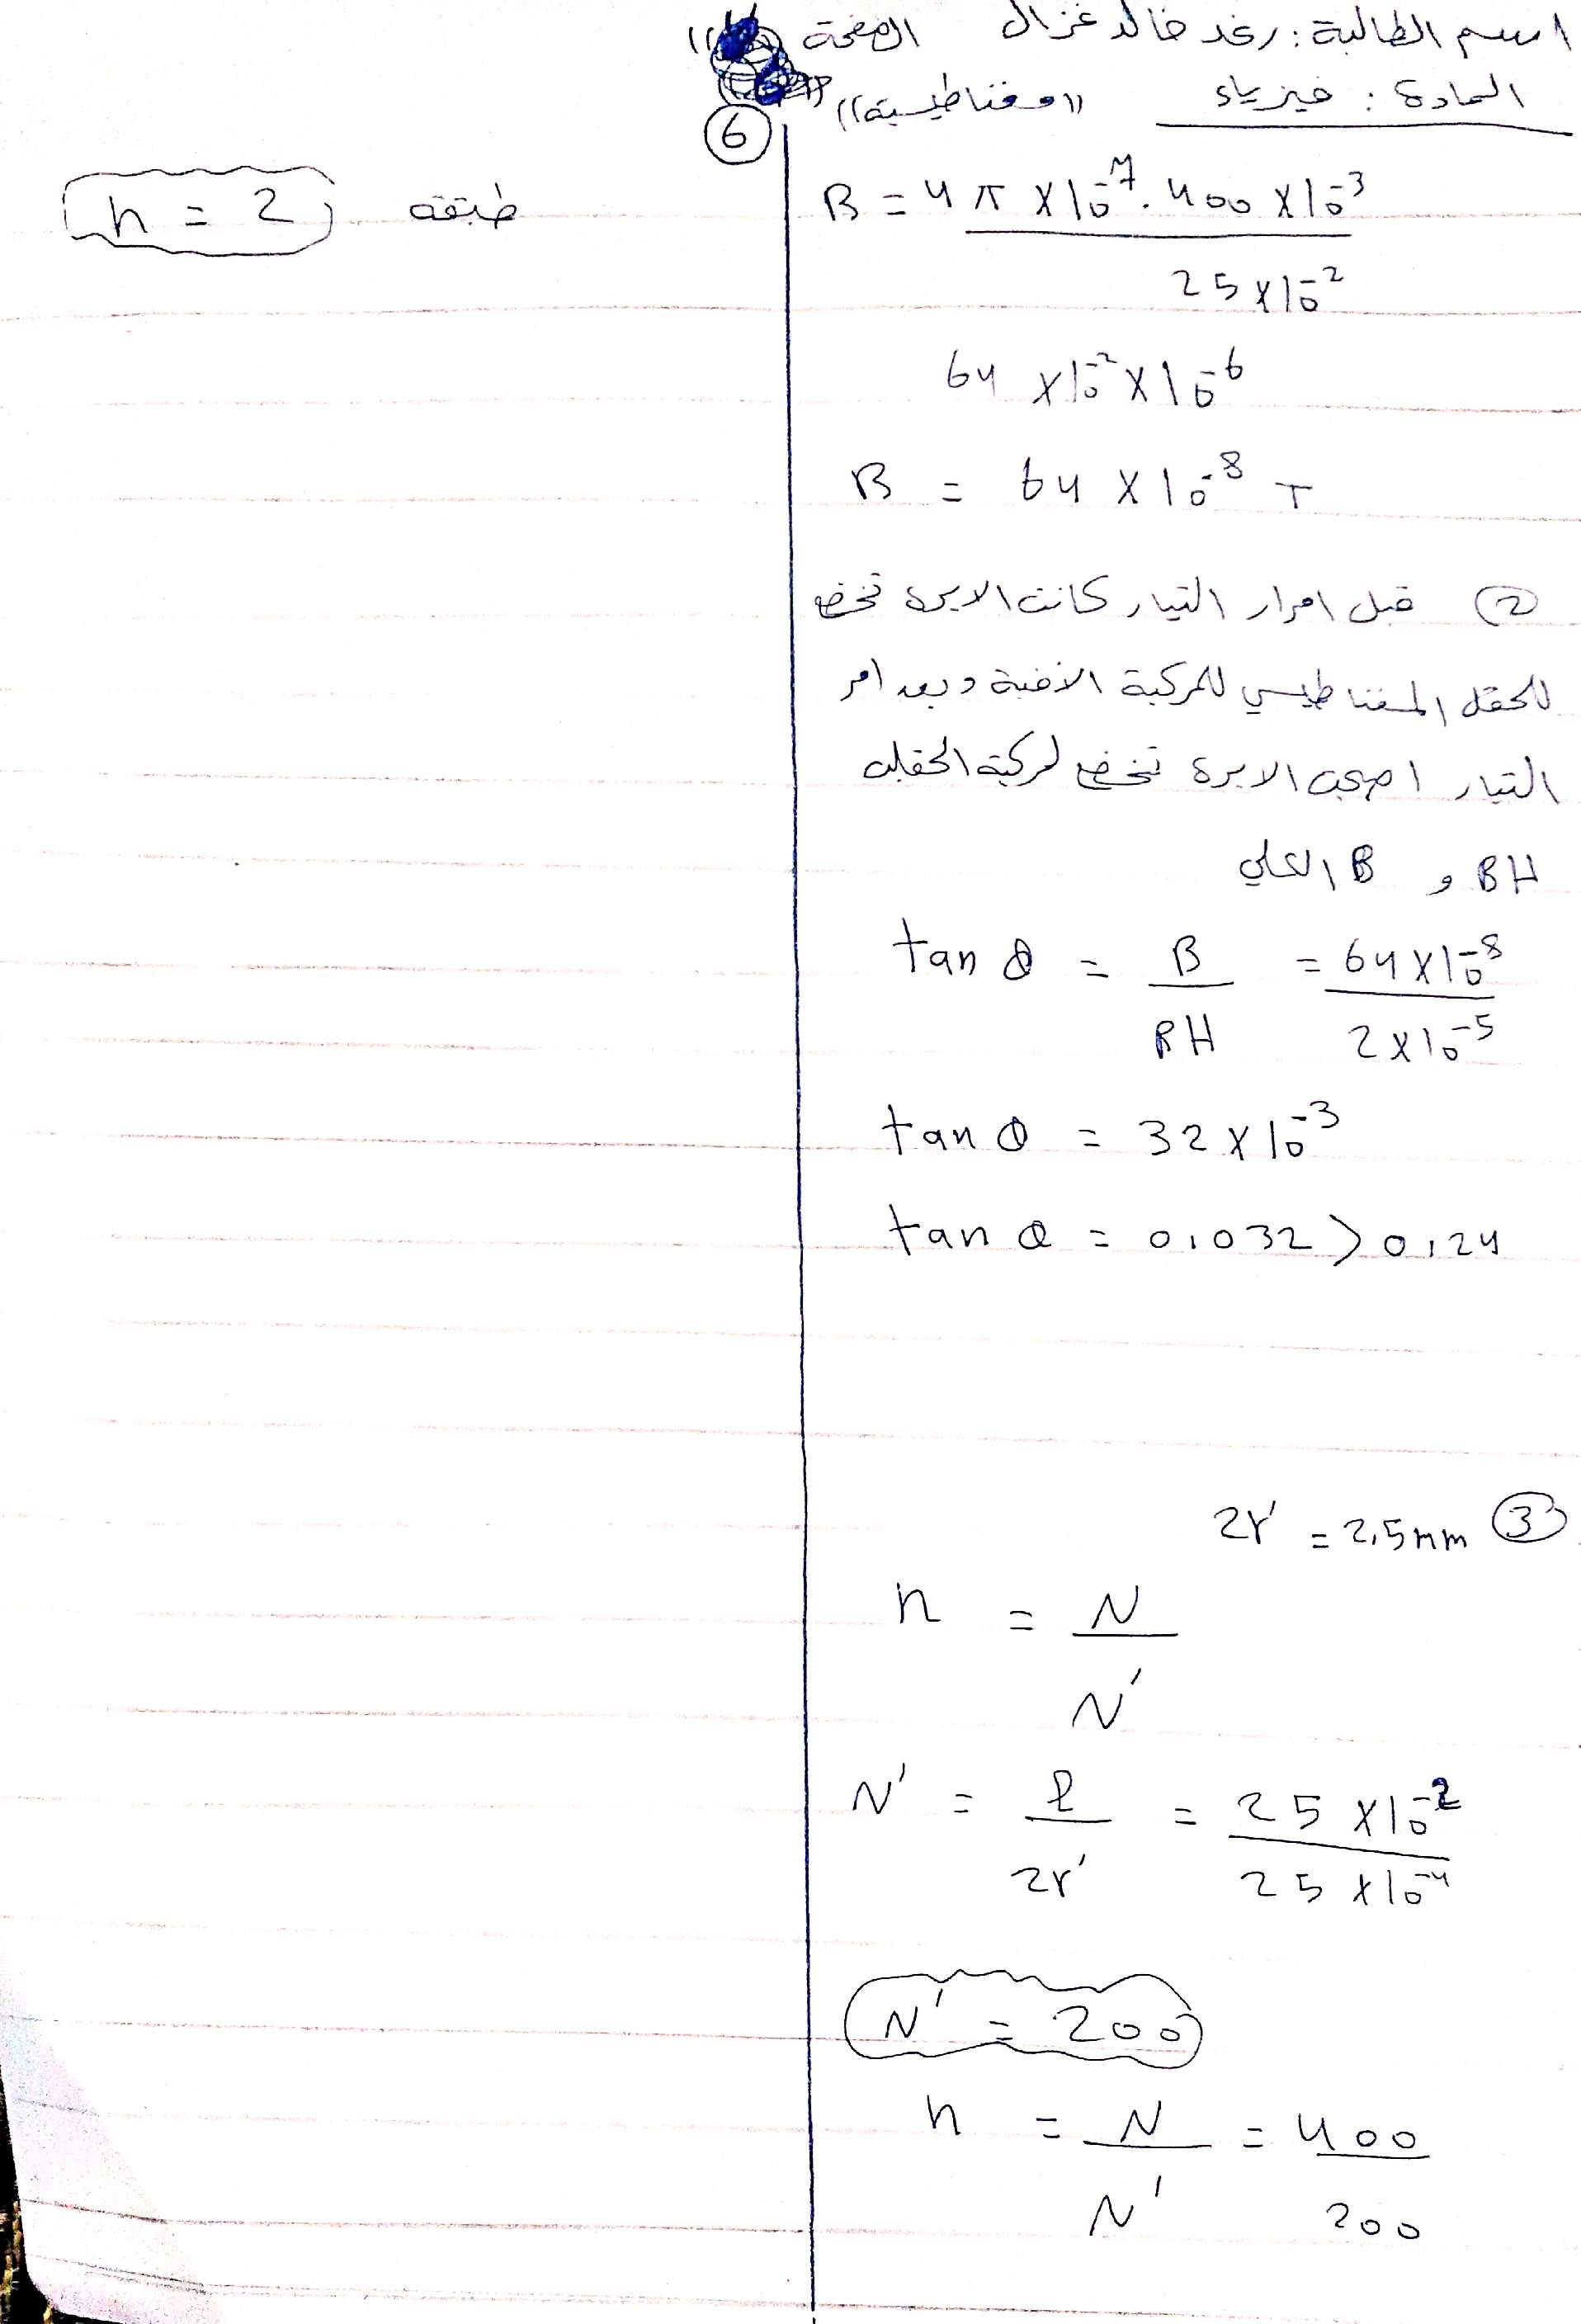 اسم الطالبة: رغد خالد غزال الصفحة
المادة: فيزياء ((مغناطيسية))
6
B = 4 π X 10^-7 . 400 X 10^-3
25 X 10^-2
64 X 10^-2 X 10^-6
B = 64 X 10^-8 T
② قبل امرار التيار كانت الابرة تخضع
للحقل المغناطيسي للمركبة الأفقية وبعد امر
التيار اصبحت الابرة تخضع لمركبة الحقلين
BH و B الكلي
tan θ = B / BH = 64 X 10^-8 / 2 X 10^-5
tan θ = 32 X 10^-3
tan θ = 0,032 > 0,24
③ 2r' = 2,5 mm
n = N / N'
N' = l / 2r' = 25 X 10^-2 / 25 X 10^-4
N' = 200
n = N / N' = 400 / 200
n = 2 طبقة